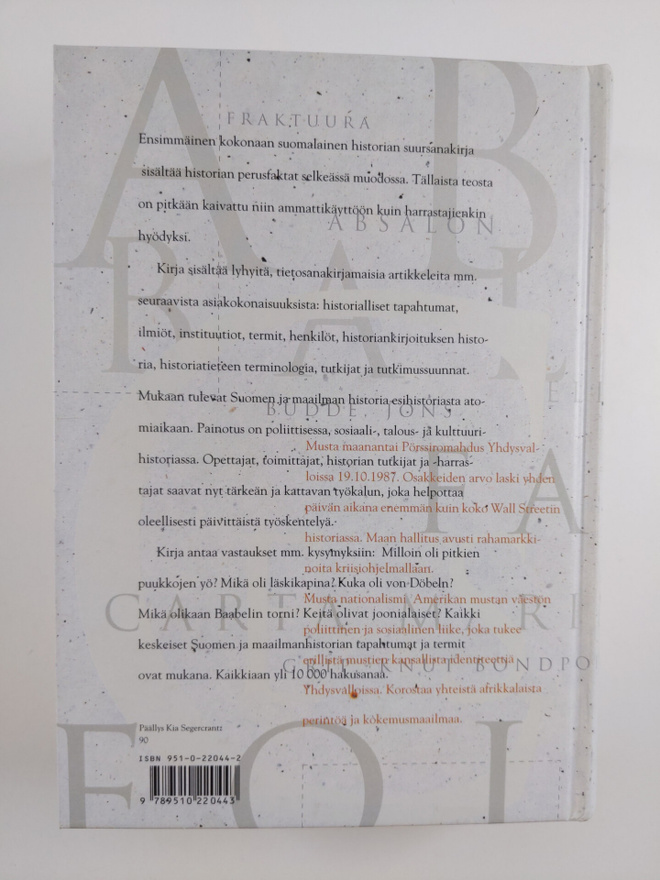 FRAKTUURA
Ensimmäinen kokonaan suomalainen historian suursanakirja
sisältää historian perusfaktat selkeässä muodossa. Tällaista teosta
on pitkään kaivattu niin ammattikäyttöön kuin harrastajienkin
ABSALON
hyödyksi.
Kirja sisältää lyhyitä, tietosanakirjamaisia artikkeleita mm.
seuraavista asiakokonaisuuksista: historialliset tapahtumat,
ilmiöt, instituutiot, termit, henkilöt, historiankirjoituksen histo-
ria, historiatieteen terminologia, tutkijat ja tutkimussuunnat.
Mukaan tulevat Suomen ja maailman historia esihistoriasta ato-
BUDDE, JÖNS
miaikaan. Painotus on poliittisessa, sosiaali-, talous- ja kulttuuri-
historiassa. Opettajat, toimittajat, historian tutkijat ja -harras-
tajat saavat nyt tärkeän ja kattavan työkalun, joka helpottaa
oleellisesti päivittäistä työskentelyä.
Kirja antaa vastaukset mm. kysymyksiin: Milloin oli pitkien
puukkojen yö? Mikä oli läskikapina? Kuka oli von Döbeln?
Mikä olikaan Baabelin torni? Keitä olivat joonialaiset? Kaikki
keskeiset Suomen ja maailmanhistorian tapahtumat ja termit
ovat mukana. Kaikkiaan yli 10 000 hakusanaa.
Musta maanantai Pörssiromahdus Yhdysval-
loissa 19.10.1987. Osakkeiden arvo laski yhden
päivän aikana enemmän kuin koko Wall Streetin
historiassa. Maan hallitus avusti rahamarkki-
noita kriisiohjelmallaan.
Musta nationalismi Amerikan mustan väestön
poliittinen ja sosiaalinen liike, joka tukee
erillistä mustien kansallista identiteettiä
Yhdysvalloissa. Korostaa yhteistä afrikkalaista
perintöä ja kokemusmaailmaa.
CARTA MARI
KNUT BONDPO
Päällys Kia Segercrantz
90
ISBN 951-0-22044-2
9 789510 220443